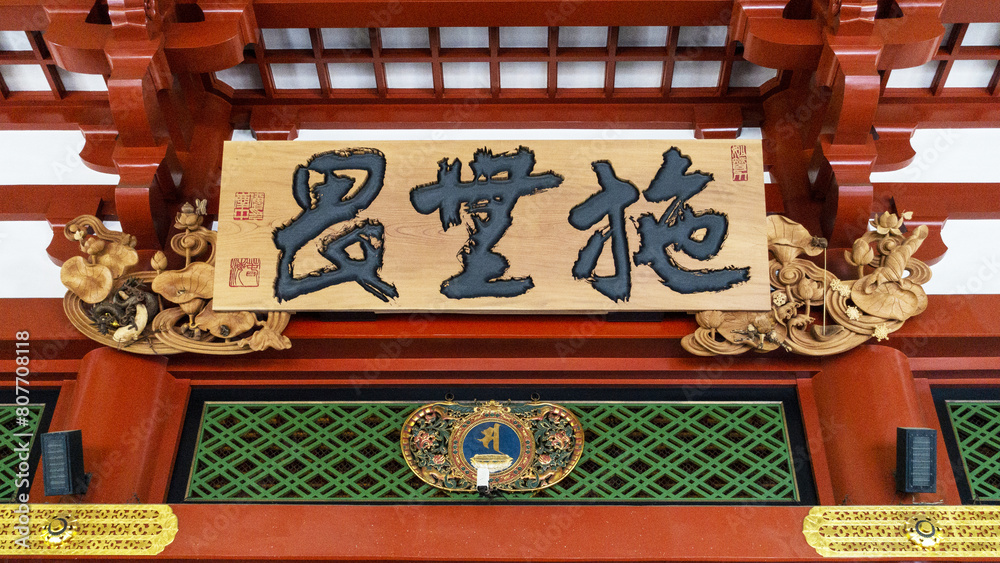 施無畏
Adobe Stock | #807708118